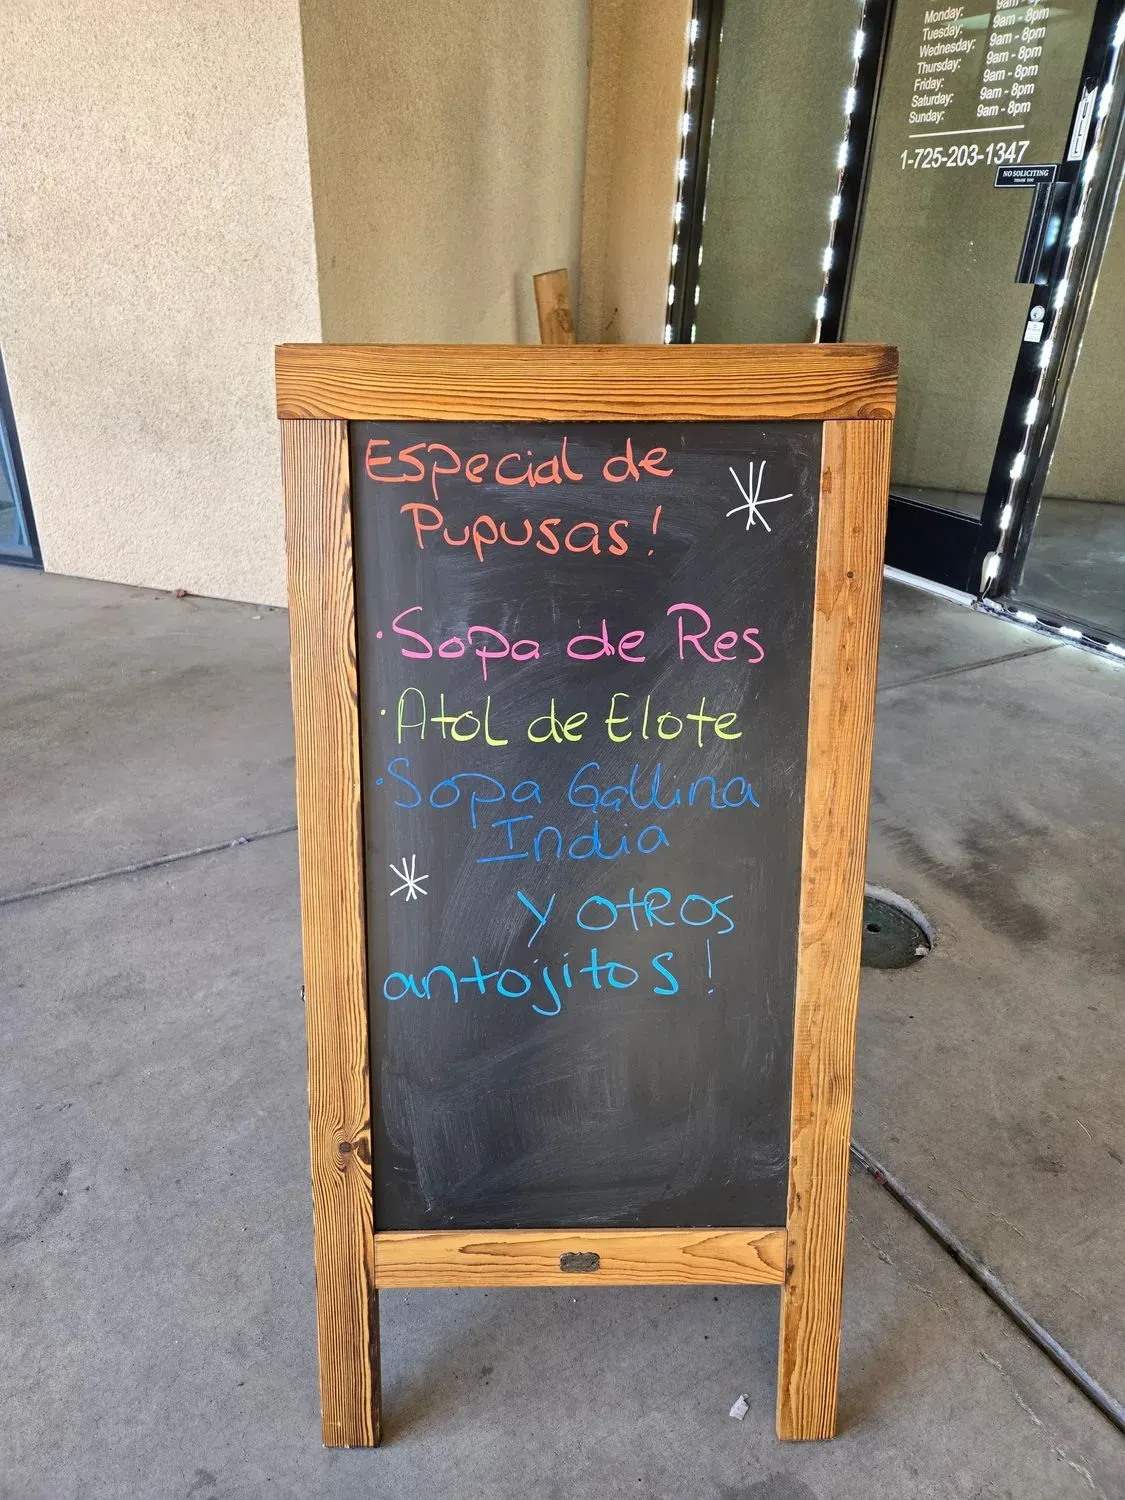 Monday: 9am - 8pm
Tuesday: 9am - 8pm
Wednesday: 9am - 8pm
Thursday: 9am - 8pm
Friday: 9am - 8pm
Saturday: 9am - 8pm
Sunday: 9am - 8pm
1-725-203-1347
NO SOLICITING
THANK YOU
Especial de
Pupusas!
·Sopa de Res
·Atol de Elote
·Sopa Gallina
India
Y otros
antojitos!